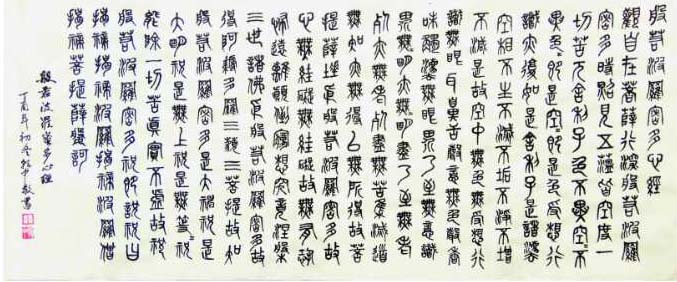 般若波羅蜜多心經
觀自在菩薩行深般若波羅
蜜多時照見五蘊皆空度一
切苦厄舍利子色不異空空不
異色色即是空空即是色受想行
識亦復如是舍利子是諸法
空相不生不滅不垢不淨不增
不減是故空中無色無受想行
識無眼耳鼻舌身意無色聲香
味觸法無眼界乃至無意識
界無無明亦無無明盡乃至無老
死亦無老死盡無苦集滅道
無智亦無得以無所得故菩
提薩埵依般若波羅蜜多故
心無罣礙無罣礙故無有恐
怖遠離顛倒夢想究竟涅槃
三世諸佛依般若波羅蜜多故
得阿耨多羅三藐三菩提故知
般若波羅蜜多是大神咒是
大明咒是無上咒是無等等咒
能除一切苦真實不虛故說
般若波羅蜜多咒即說咒曰
揭諦揭諦波羅揭諦波羅僧
揭諦菩提薩婆訶
般若波羅蜜多心經
丁亥年初冬 敬書